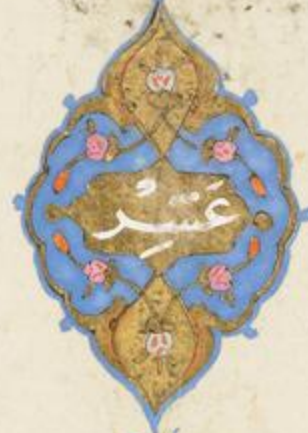 عَشْرٌ